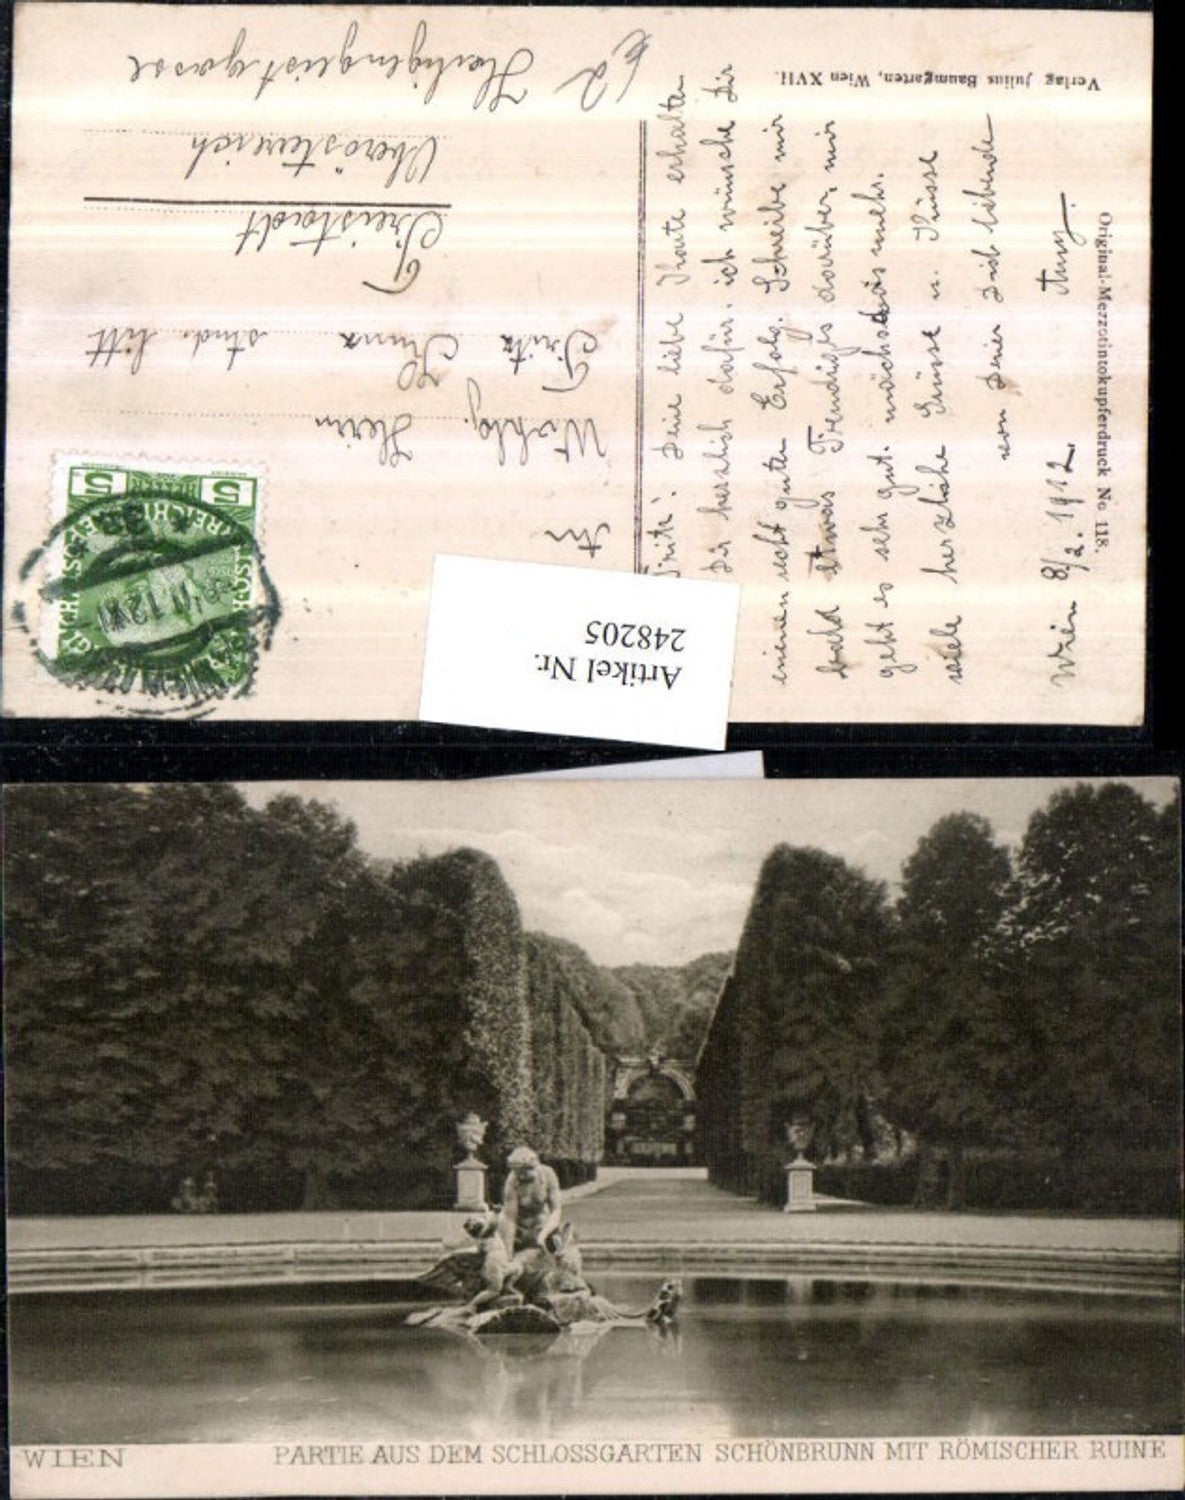 Verlag Julius Baumgarten, Wien XVII.
Original-Mezzotintokupferdruck No 118.
5 5
Wohlg. Herrn
Fritz stud. litt
Freistadt
Oberösterreich
62 Heiligengeistgasse
Artikel Nr.
248205
Fritz! Deine liebe Karte erhalten
Dir herzlich dafür. ich wünsche Dir
einen recht guten Erfolg. Schreibe mir
bald etwas Freudiges darüber, mir
geht es sehr gut. nächstens mehr.
viele herzliche Grüsse u. Küsse
von Deiner Dich liebende
Wien 8/2. 1912
WIEN
PARTIE AUS DEM SCHLOSSGARTEN SCHÖNBRUNN MIT RÖMISCHER RUINE